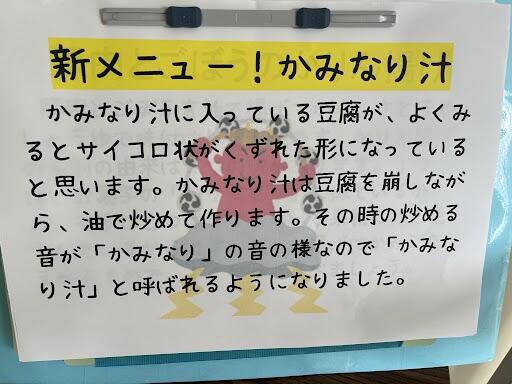 新メニュー！かみなり汁
かみなり汁に入っている豆腐が、よくみ
るとサイコロ状がくずれた形になっている
と思います。かみなり汁は豆腐を崩しなが
ら、油で炒めて作ります。その時の炒める
音が「かみなり」の音の様なので「かみな
り汁」と呼ばれるようになりました。